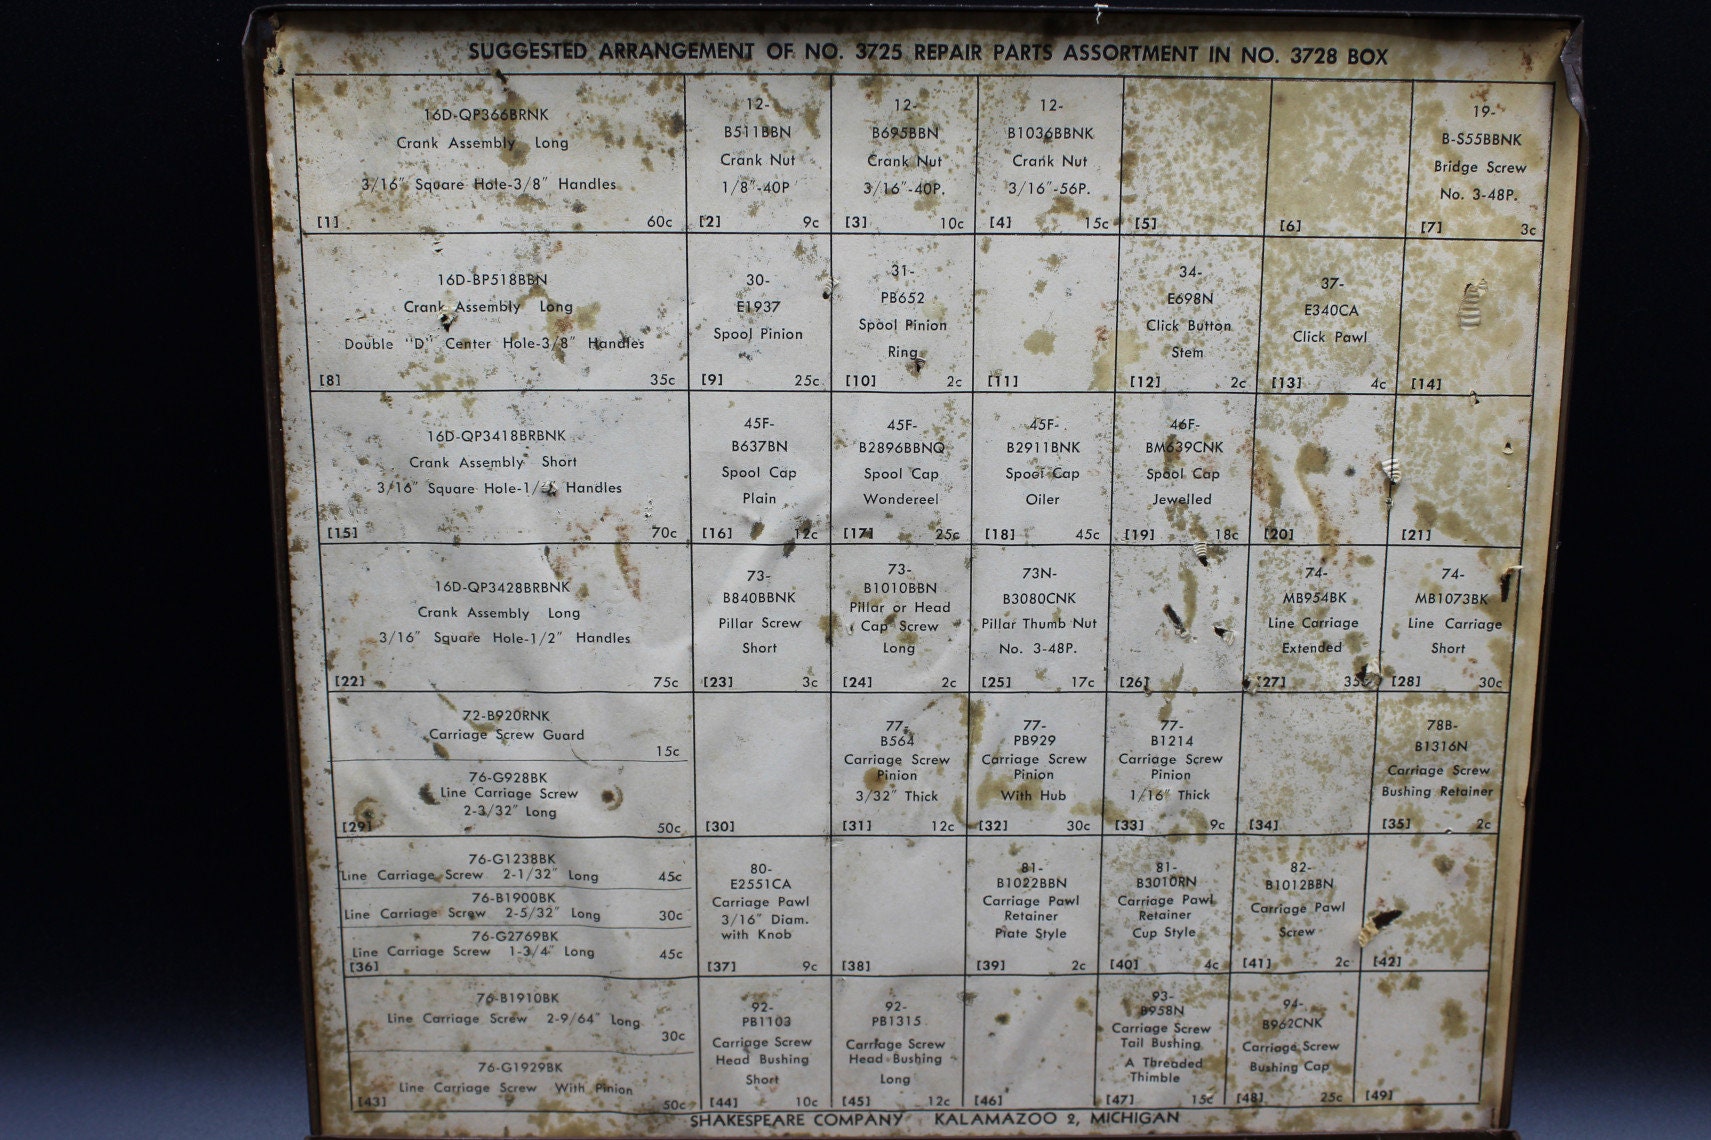 SUGGESTED ARRANGEMENT OF NO. 3725 REPAIR PARTS ASSORTMENT IN NO. 3728 BOX
16D-QP366BRNK
Crank Assembly Long
3/16" Square Hole-3/8" Handles
[1] 60c
12-
B511BBN
Crank Nut
1/8"-40P
[2] 9c
12-
B695BBN
Crank Nut
3/16"-40P.
[3] 10c
12-
B1036BBNK
Crank Nut
3/16"-56P.
[4] 15c
[5]
[6]
19-
B-S55BBNK
Bridge Screw
No. 3-48P.
[7] 3c
16D-BP518BBN
Crank Assembly Long
Double "D" Center Hole-3/8" Handles
[8] 35c
30-
E1937
Spool Pinion
[9] 25c
31-
PB652
Spool Pinion
Ring
[10] 2c
[11]
34-
E698N
Click Button
Stem
[12] 2c
37-
E340CA
Click Pawl
[13] 4c
[14]
16D-QP3418BRBNK
Crank Assembly Short
3/16" Square Hole-1/ Handles
[15] 70c
45F-
B637BN
Spool Cap
Plain
[16] 12c
45F-
B2896BBNQ
Spool Cap
Wondereel
[17] 25c
45F-
B2911BNK
Spool Cap
Oiler
[18] 45c
46F-
BM639CNK
Spool Cap
Jewelled
[19] 18c
[20]
[21]
16D-QP3428BRBNK
Crank Assembly Long
3/16" Square Hole-1/2" Handles
[22] 75c
73-
B840BBNK
Pillar Screw
Short
[23] 3c
73-
B1010BBN
Pillar or Head
Cap Screw
Long
[24] 2c
73N-
B3080CNK
Pillar Thumb Nut
No. 3-48P.
[25] 17c
[26]
74-
MB954BK
Line Carriage
Extended
[27] 35
74-
MB1073BK
Line Carriage
Short
[28] 30c
72-B920RNK
Carriage Screw Guard
15c
76-G928BK
Line Carriage Screw
2-3/32" Long
[29] 50c
[30]
77-
B564
Carriage Screw
Pinion
3/32" Thick
[31] 12c
77-
PB929
Carriage Screw
Pinion
With Hub
[32] 30c
77-
B1214
Carriage Screw
Pinion
1/16" Thick
[33] 9c
[34]
78B-
B1316N
Carriage Screw
Bushing Retainer
[35] 2c
76-G1238BK
Line Carriage Screw 2-1/32" Long 45c
76-B1900BK
Line Carriage Screw 2-5/32" Long 30c
76-G2769BK
Line Carriage Screw 1-3/4" Long 45c
[36]
80-
E2551CA
Carriage Pawl
3/16" Diam.
with Knob
[37] 9c
[38]
81-
B1022BBN
Carriage Pawl
Retainer
Plate Style
[39] 2c
81-
B3010RN
Carriage Pawl
Retainer
Cup Style
[40] 4c
82-
B1012BBN
Carriage Pawl
Screw
[41] 2c
[42]
76-B1910BK
Line Carriage Screw 2-9/64" Long
30c
76-G1929BK
Line Carriage Screw With Pinion
[43] 50c
92-
PB1103
Carriage Screw
Head Bushing
Short
[44] 10c
92-
PB1315
Carriage Screw
Head Bushing
Long
[45] 12c
[46]
93-
B958N
Carriage Screw
Tail Bushing
A Threaded
Thimble
[47] 15c
94-
B962CNK
Carriage Screw
Bushing Cap
[48] 25c
[49]
SHAKESPEARE COMPANY KALAMAZOO 2, MICHIGAN